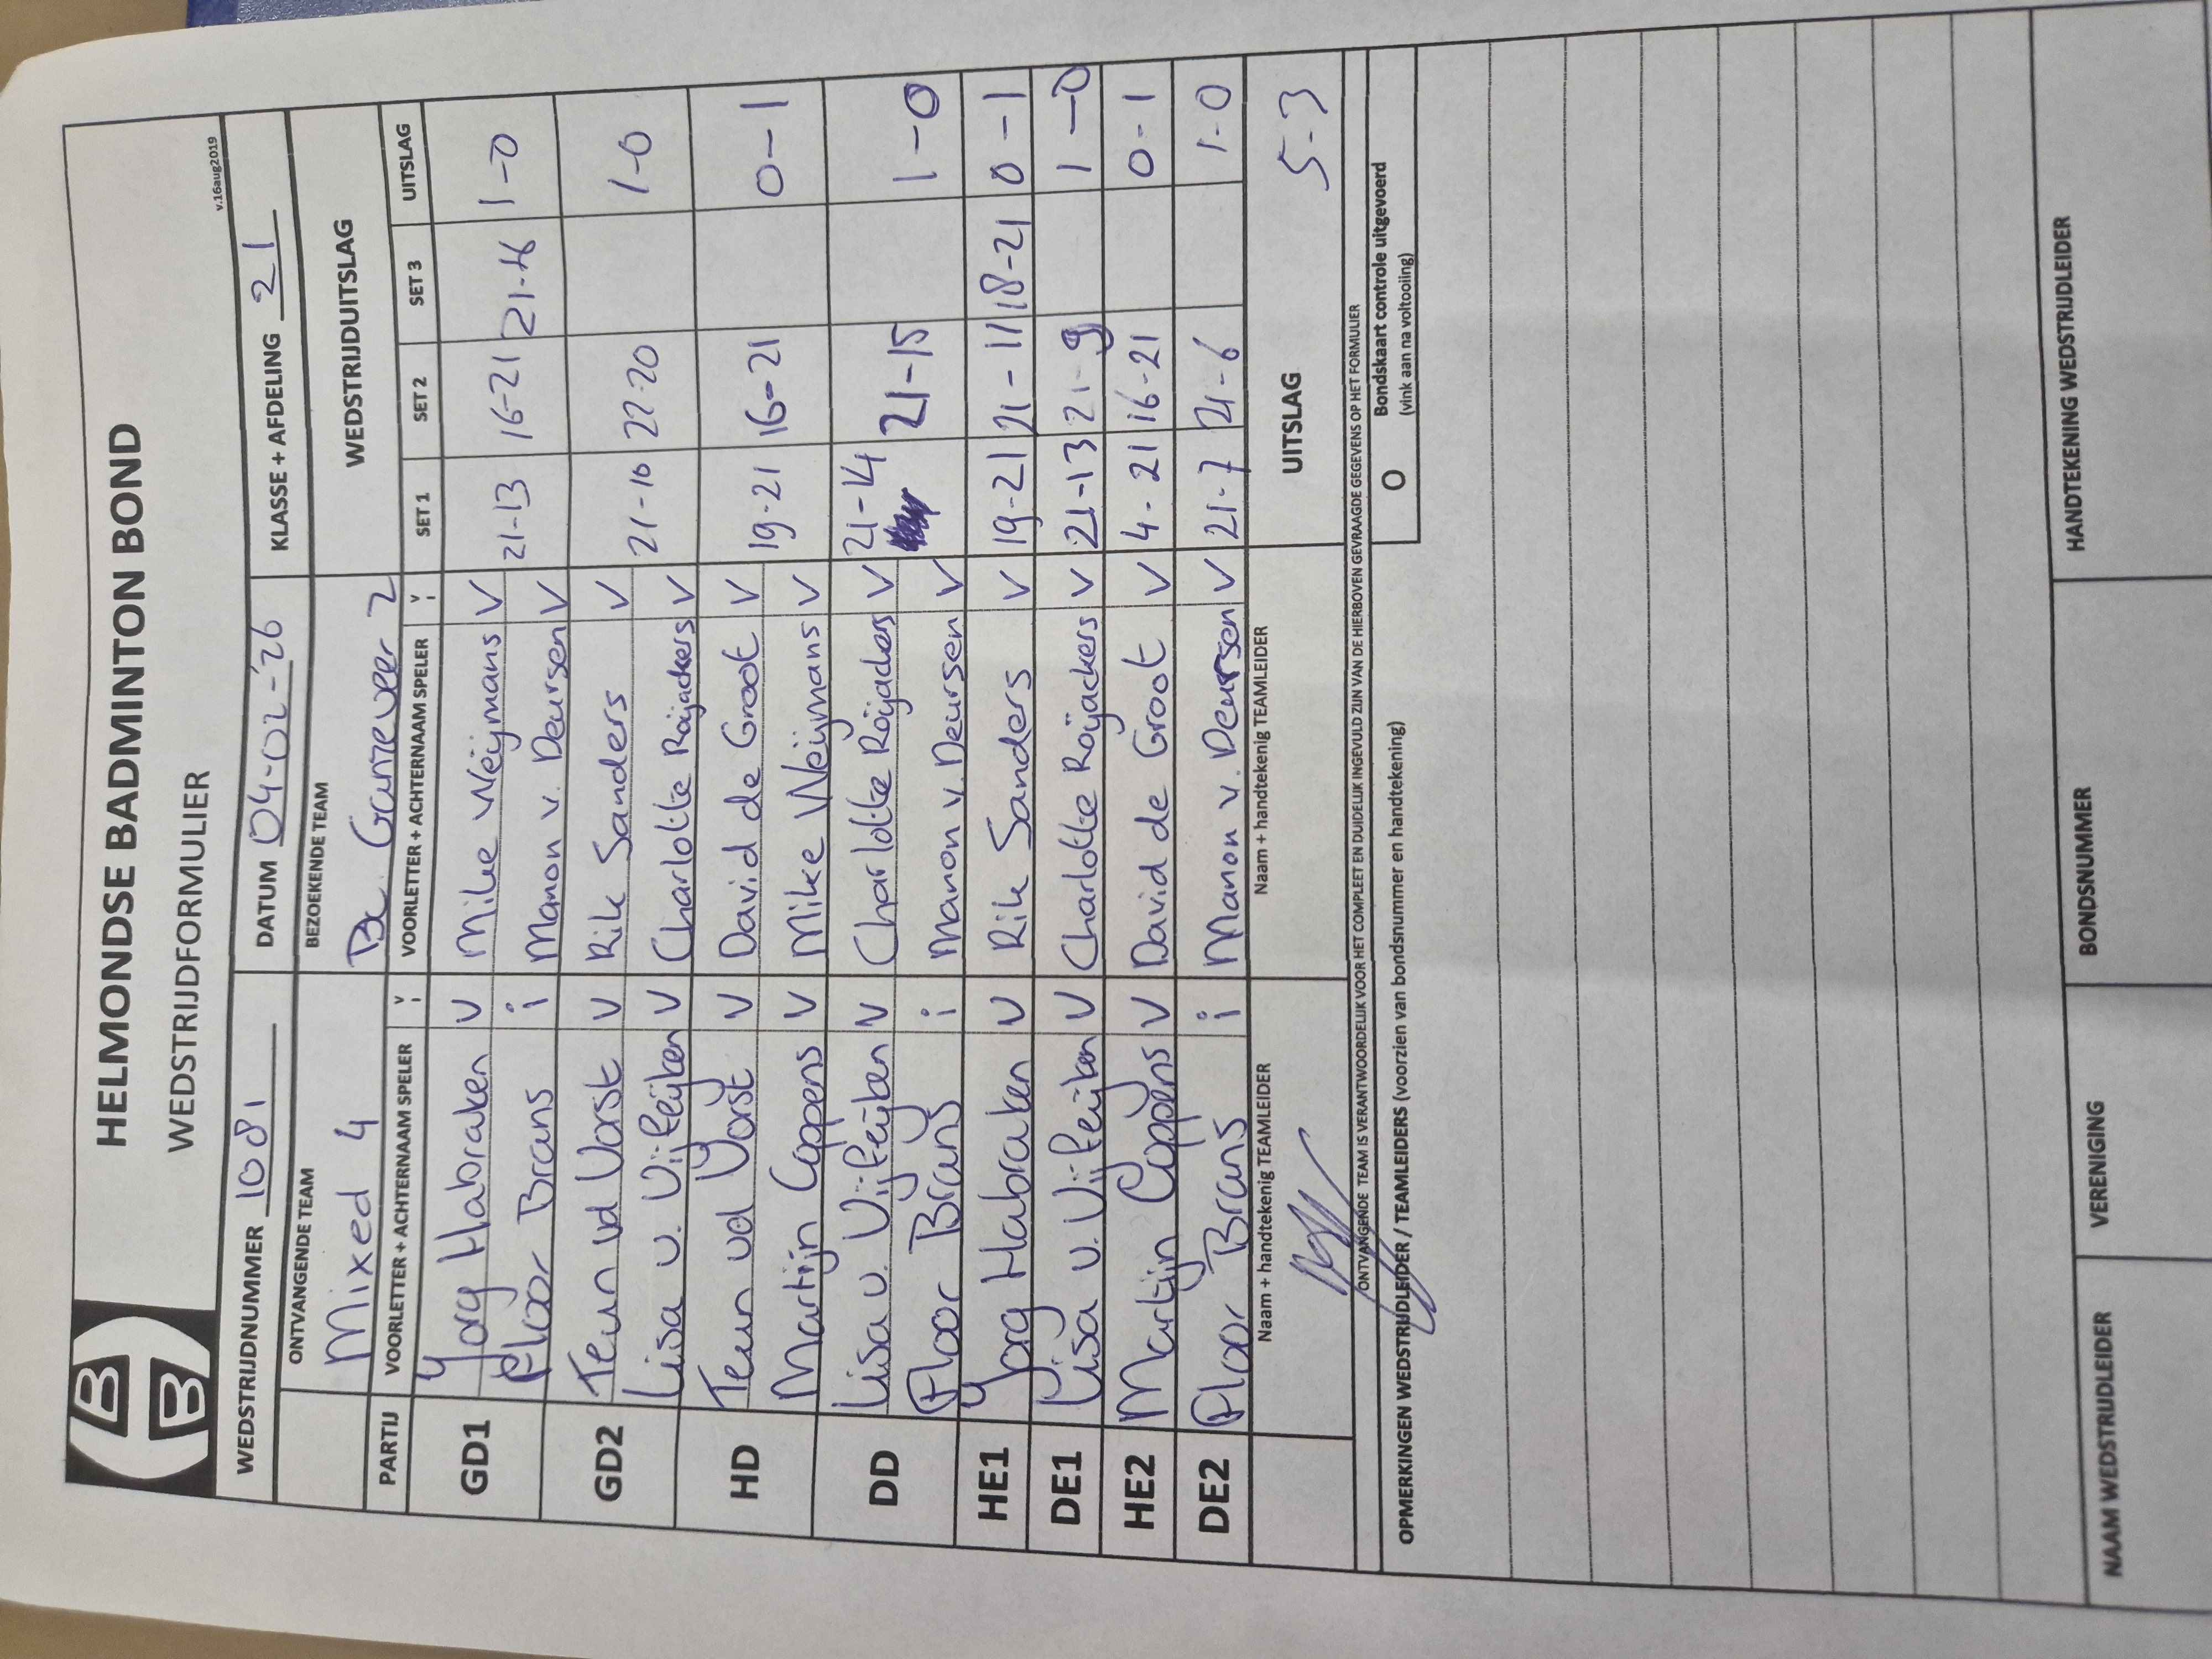 HBB
HELMONDSE BADMINTON BOND
WEDSTRIJDFORMULIER
v.16aug2019
WEDSTRIJDNUMMER 1081 DATUM 04-02-'26 KLASSE + AFDELING 21
ONTVANGENDE TEAM BEZOEKENDE TEAM WEDSTRIJDUITSLAG
Mixed 4 BC 2
PARTIJ VOORLETTER + ACHTERNAAM SPELER V/I VOORLETTER + ACHTERNAAM SPELER V/I SET 1 SET 2 SET 3 UITSLAG
GD1 Yorg Habraken V Mike Weijmans V 21-13 16-21 21-16 1-0
Floor Brans i Manon v. Deursen V
GD2 Teun vd Vorst V Rik Sanders V 21-10 22-20 1-0
Lisa v. Vijfeijken V Charlotte Roijackers V
HD Teun vd Vorst V David de Groot V 19-21 16-21 0-1
Martijn Coppens V Mike Weijmans V
DD Lisa v. Vijfeijken V Charlotte Roijackers V 21-14 21-15 1-0
Floor Brans i Manon v. Deursen V
HE1 Yorg Habraken V Rik Sanders V 19-21 21-11 18-21 0-1
DE1 Lisa v. Vijfeijken V Charlotte Roijackers V 21-13 21-9 1-0
HE2 Martijn Coppens V David de Groot V 4-21 16-21 0-1
DE2 Floor Brans i Manon v. Deursen V 21-7 21-6 1-0
Naam + handtekenig TEAMLEIDER Naam + handtekenig TEAMLEIDER UITSLAG 5-3
ONTVANGENDE TEAM IS VERANTWOORDELIJK VOOR HET COMPLEET EN DUIDELIJK INGEVULD ZIJN VAN DE HIERBOVEN GEVRAAGDE GEGEVENS OP HET FORMULIER
OPMERKINGEN WEDSTRIJDLEIDER / TEAMLEIDERS (voorzien van bondsnummer en handtekening)
O Bondskaart controle uitgevoerd
(vink aan na voltooiing)
NAAM WEDSTRIJDLEIDER VERENIGING BONDSNUMMER HANDTEKENING WEDSTRIJDLEIDER